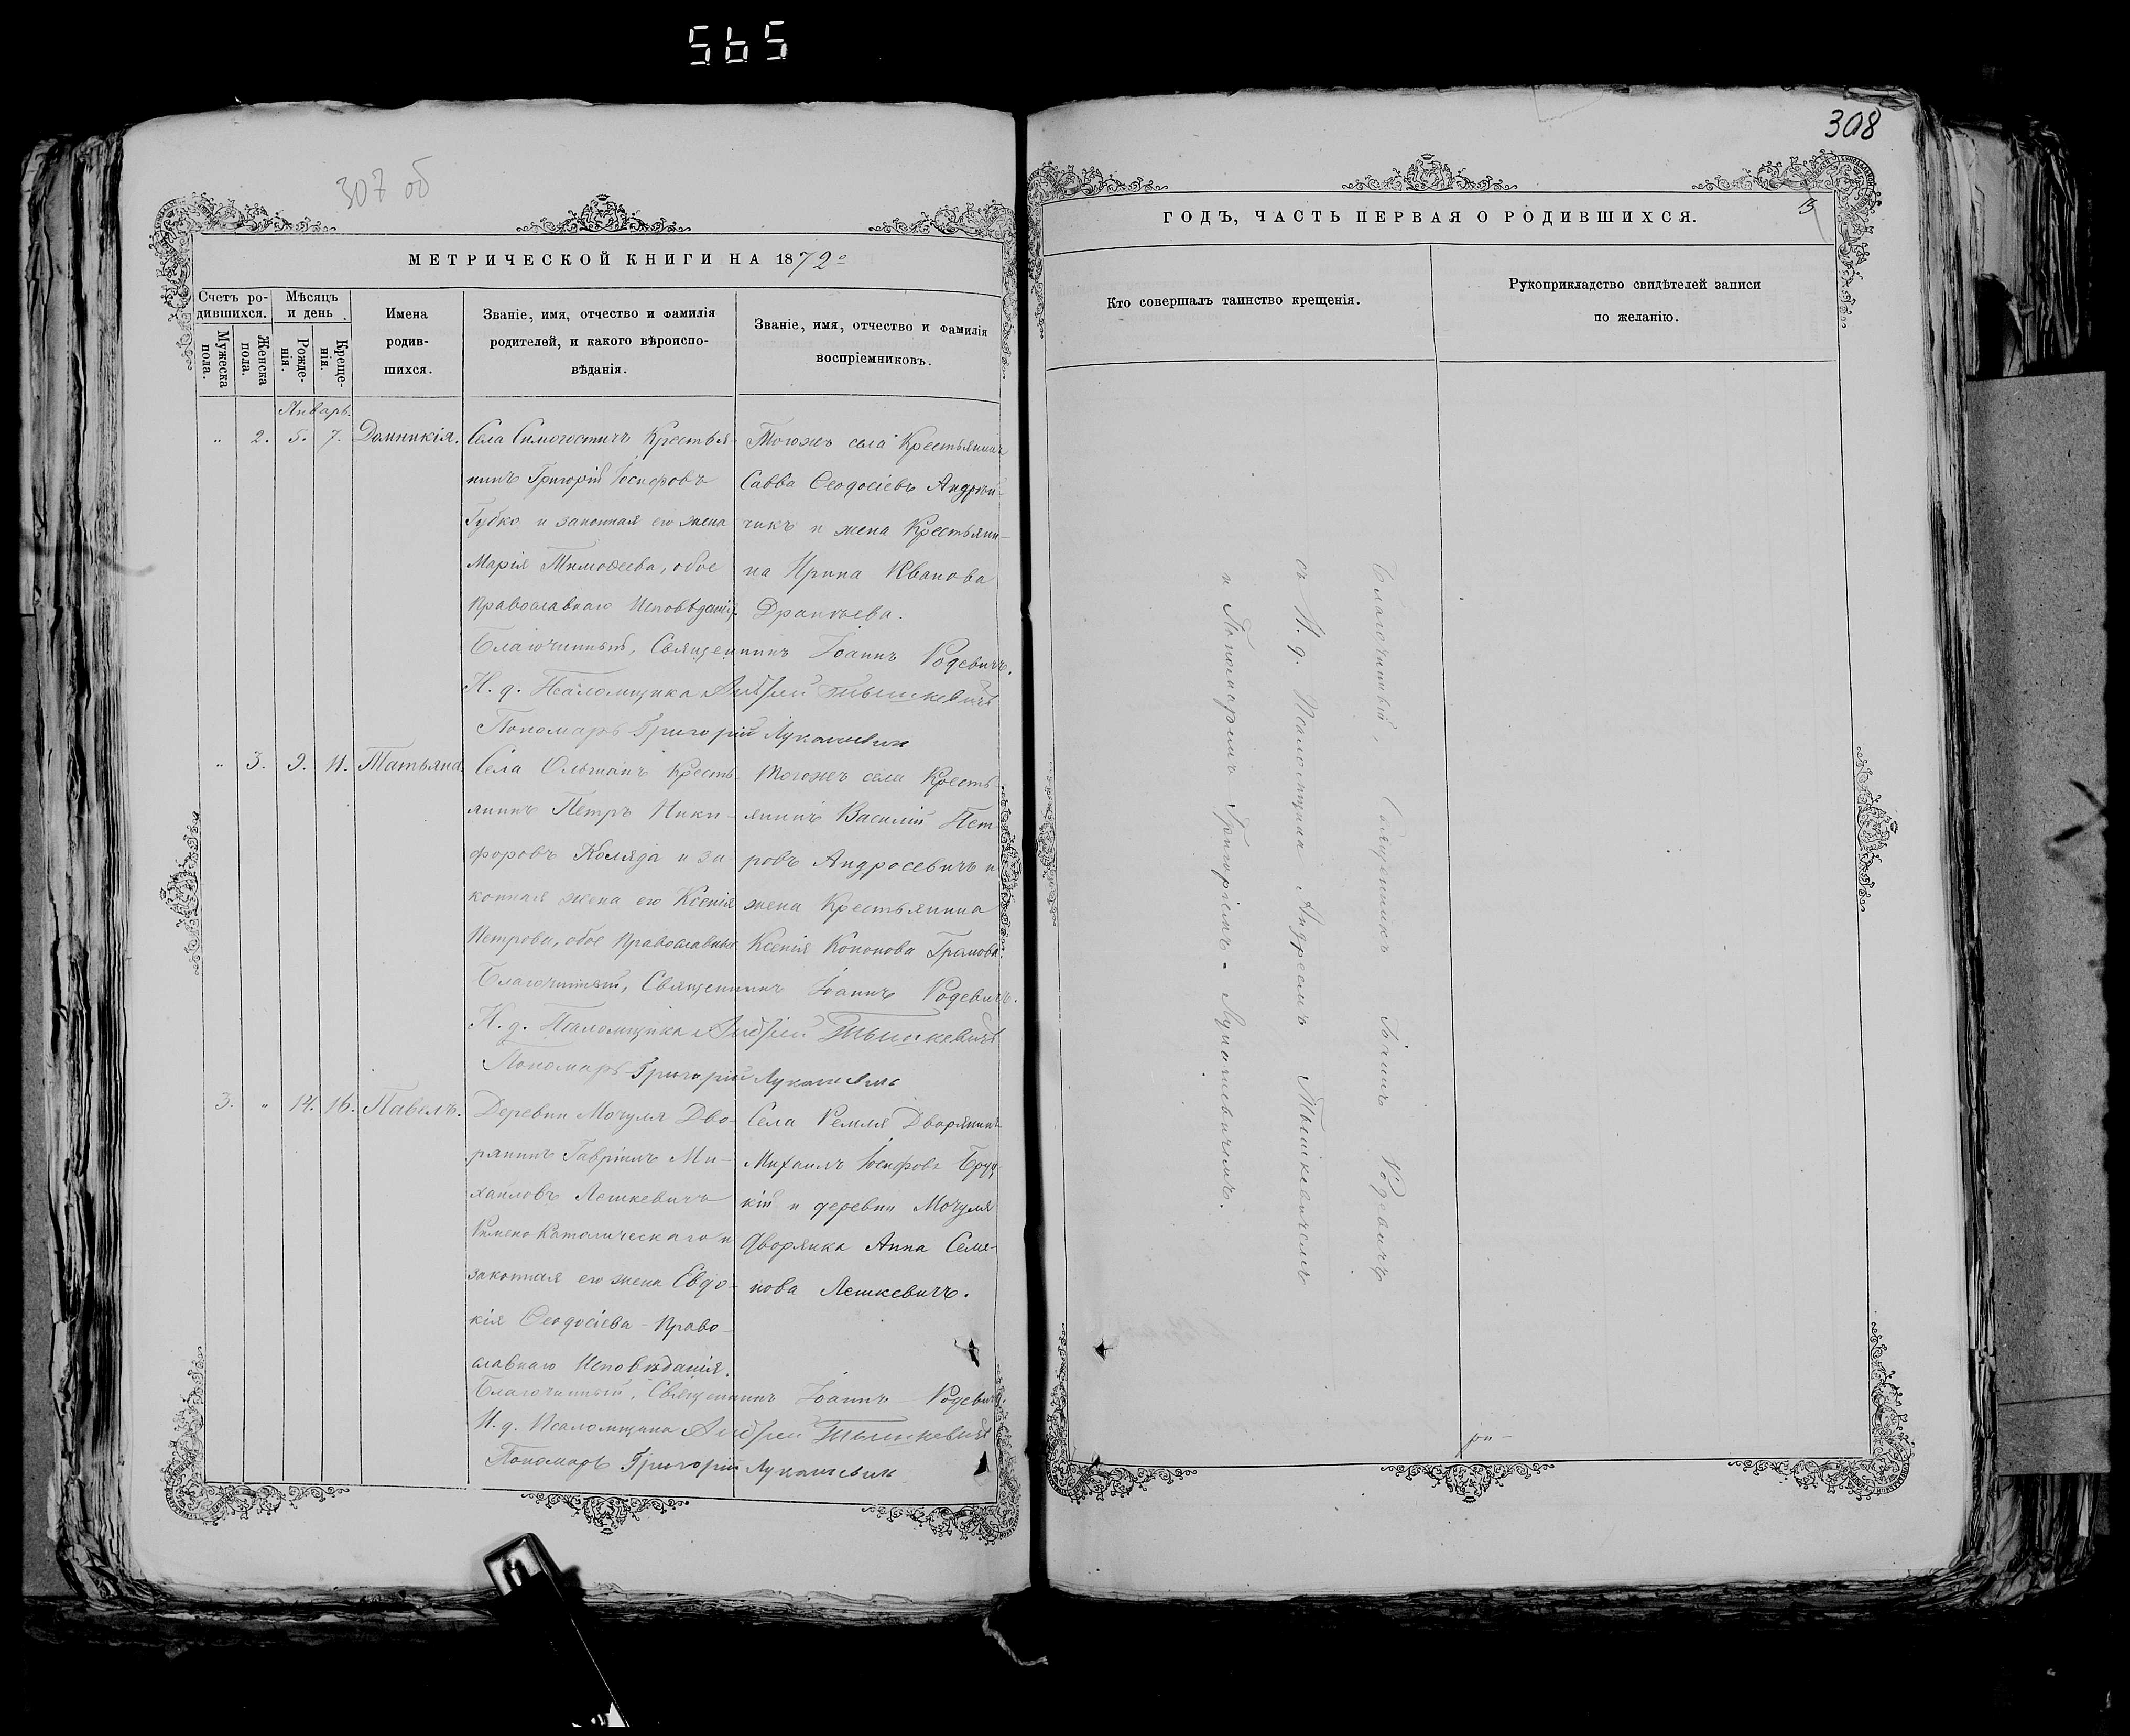 565
307 об
МЕТРИЧЕСКОЙ КНИГИ НА 1872о
Счетъ ро-
дившихся.
Мужеска
пола.
Женска
пола.
Мѣсяцъ
и день
Рожде-
нія.
Креще-
нія.
Имена
родив-
шихся.
Званіе, имя, отчество и фамилія
родителей, и какого вѣроиспо-
вѣданія.
Званіе, имя, отчество и фамилія
воспріемниковъ.
Январь.
„ 2. 5. 7. Домникія.
Села Симогостичъ Крестья-
нинъ Григорій Іосифовъ
Губко и законная его жена
Марія Тимоѳеева, обое
Православнаго Исповѣданія
Тогожъ села Крестьянинъ
Савва Ѳеодосіевъ Андрей-
чикъ и жена Крестьяни-
на Ирина Иванова
Благочинный, Священникъ Іоаннъ Родевичъ.
И. д. Псаломщика Андрей Тышкевичъ
Пономарь Григорій Лукашевич
„ 3. 9. 11. Татьяна
Села Ольшанъ Кресть-
янинъ Петръ Ники-
форовъ Коляда и за-
конная жена его Ксенія
Петрова, обое Православные
Тогожъ села Кресть-
янинъ Василій Пет-
ровъ Андросевичъ и
жена Крестьянина
Ксенія Кононова
Благочинный, Священникъ Іоаннъ Родевичъ.
И. д. Псаломщика Андрей Тышкевичъ
Пономарь Григорій Лукашевич
3. „ 14. 16. Павелъ.
Деревни Мочуля Дво-
рянинъ Гавріилъ Ми-
хайловъ Лешкевичъ
Римско Католическаго и
законная его жена Евдо-
кія Ѳеодосіева - Право-
славнаго Исповѣданія.
Села Ремля Дворянинъ
Михаилъ Іосифовъ Бруц-
кій и деревни Мочуля
Дворянка Анна Семе-
нова Лешкевичъ.
Благочинный, Священникъ Іоаннъ Родевичъ.
И. д. Псаломщика Андрей Тышкевичъ
Пономарь Григорій Лукашевич
308
3
ГОДЪ, ЧАСТЬ ПЕРВАЯ О РОДИВШИХСЯ.
Кто совершалъ таинство крещенія.
Рукоприкладство свидѣтелей записи
по желанію.
Благочинный, Священникъ Іоаннъ Родевичъ
съ И. д. Псаломщика Андреемъ Тышкевичемъ
и Пономаремъ Григоріемъ Лукашевичемъ.